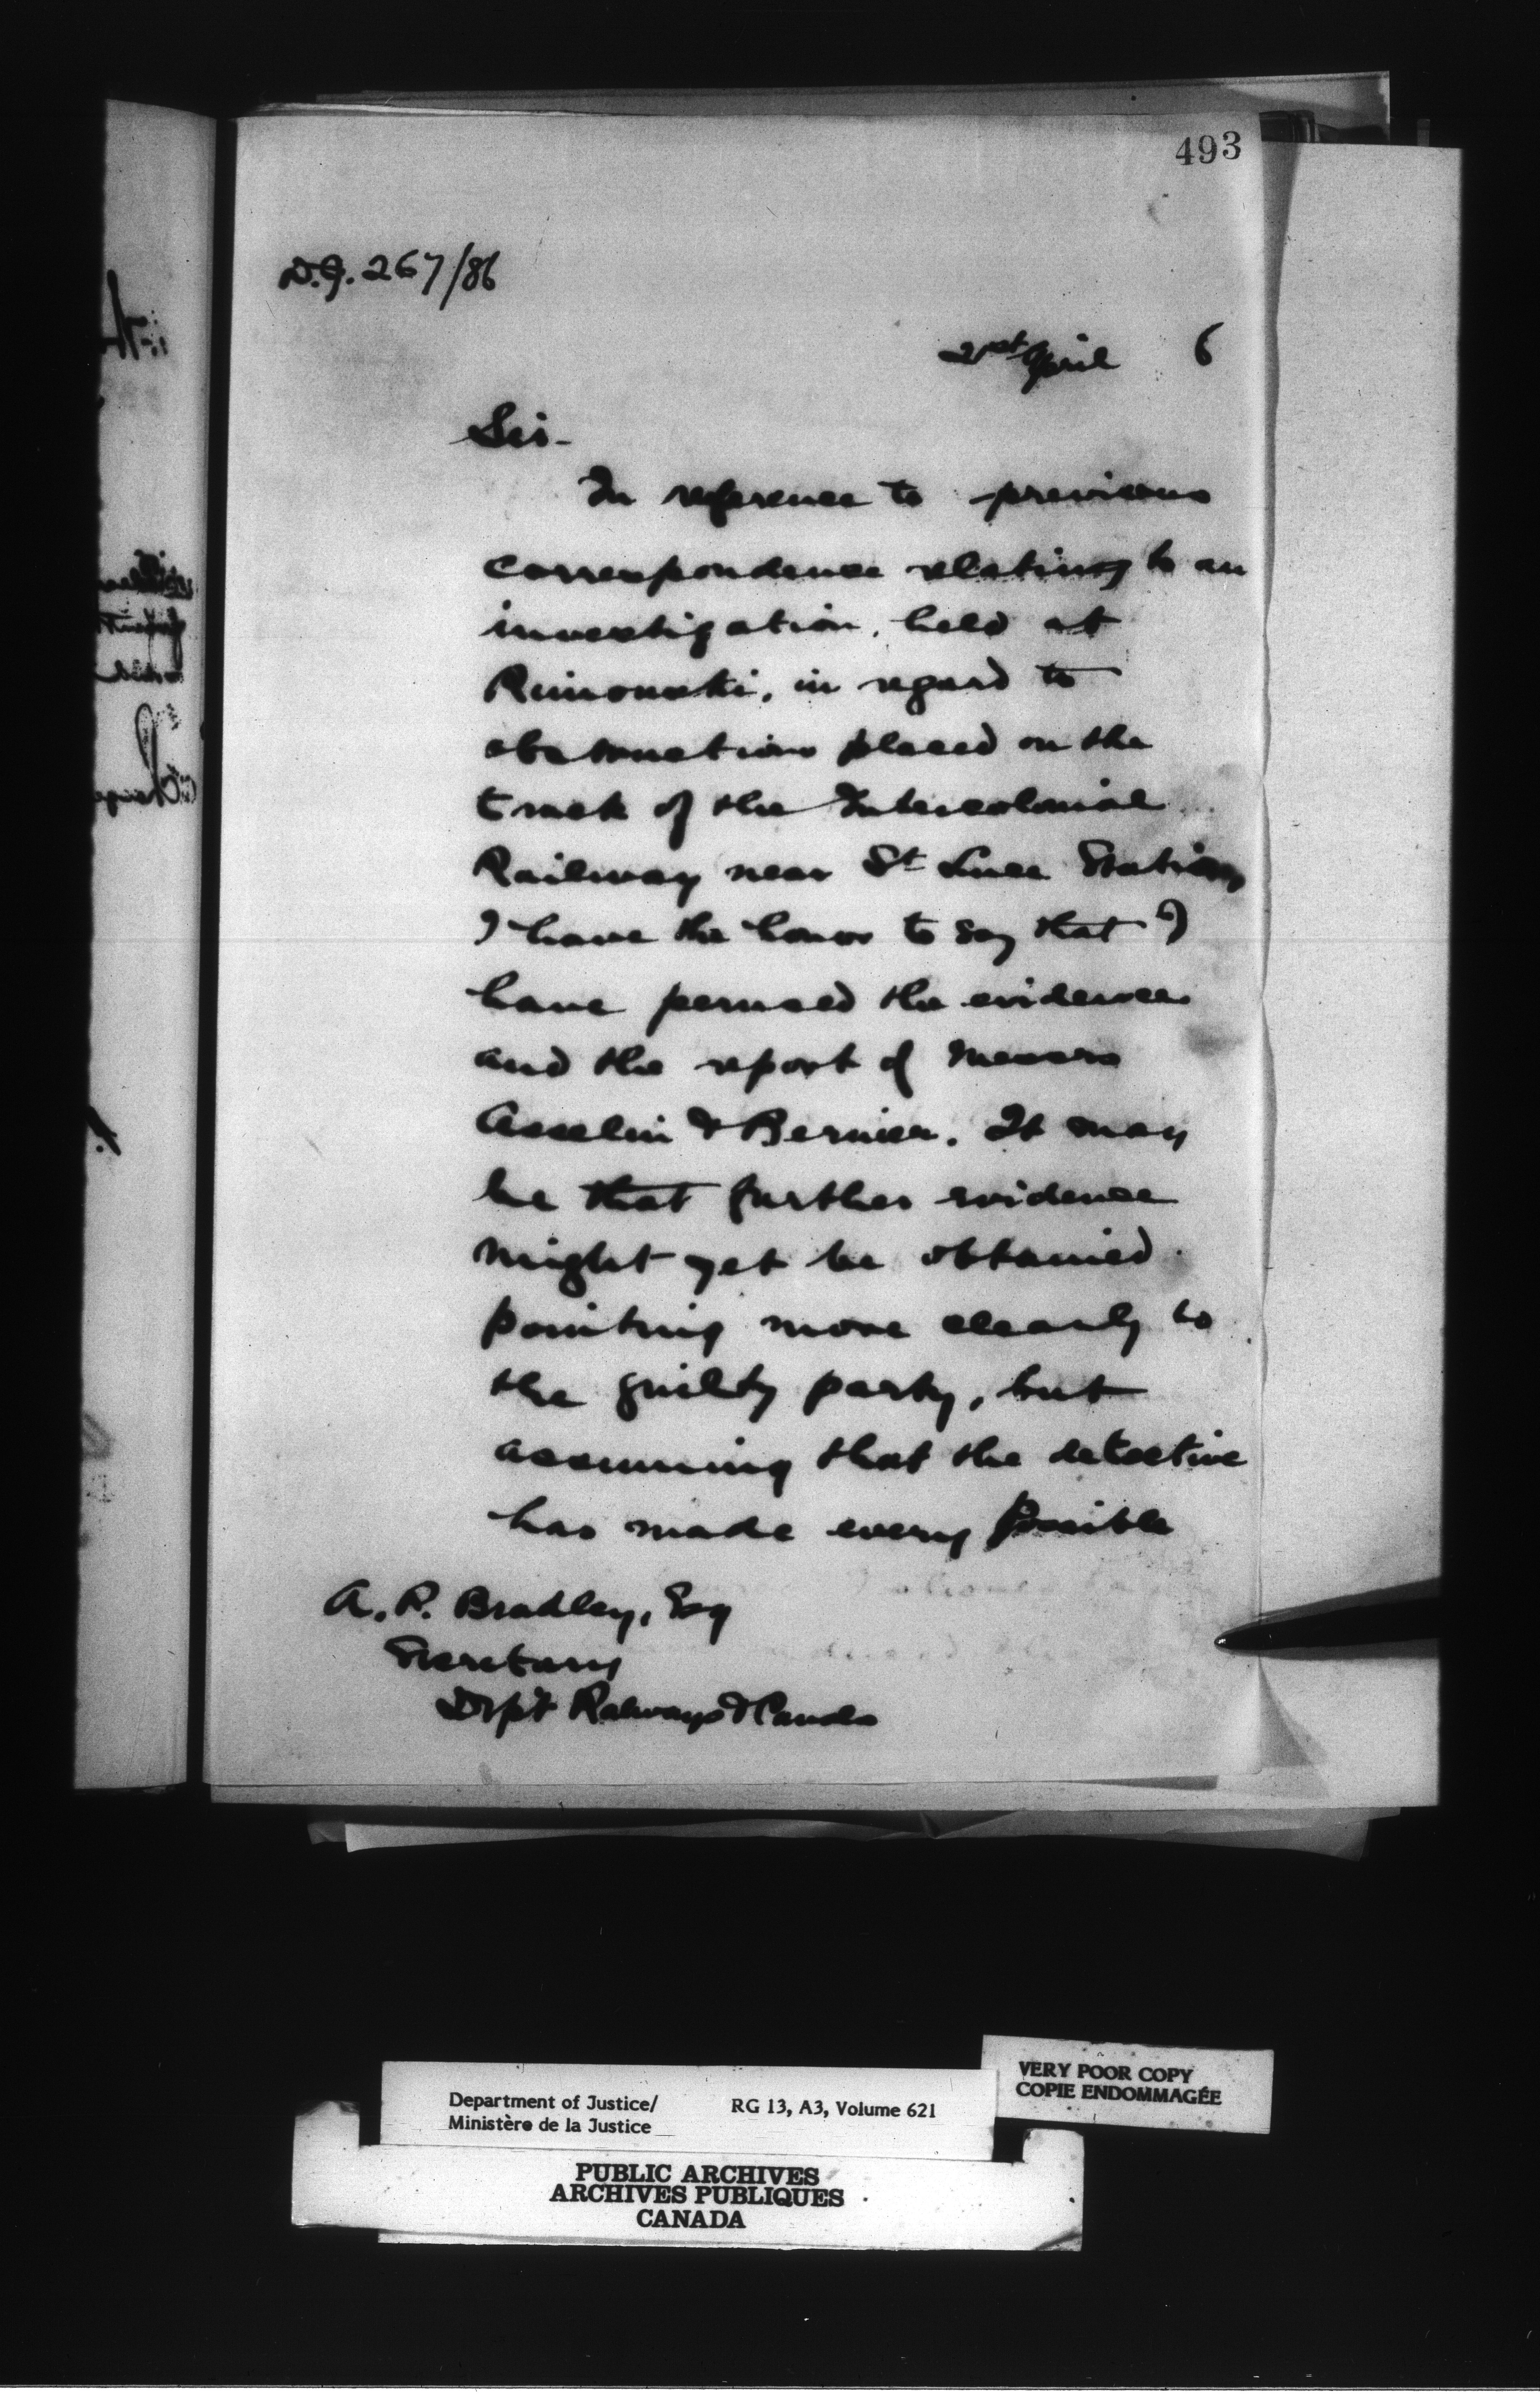 493
D.J. 267/86
21st April 6
Sir-
In reference to previous
correspondence relating to an
investigation, held at
Rimouski, in regard to
obstructions placed on the
track of the Intercolonial
Railway near St Luce Station
I have the honor to say that I
have perused the evidence
and the report of Messrs
Asselin & Bernier. It may
be that further evidence
might yet be obtained
pointing more clearly to
the guilty party, but
assuming that the detective
has made every possible
A. P. Bradley, Esq
Secretary
Dep't Railways & Canals
VERY POOR COPY
COPIE ENDOMMAGÉE
Department of Justice/ RG 13, A3, Volume 621
Ministère de la Justice
PUBLIC ARCHIVES
ARCHIVES PUBLIQUES
CANADA